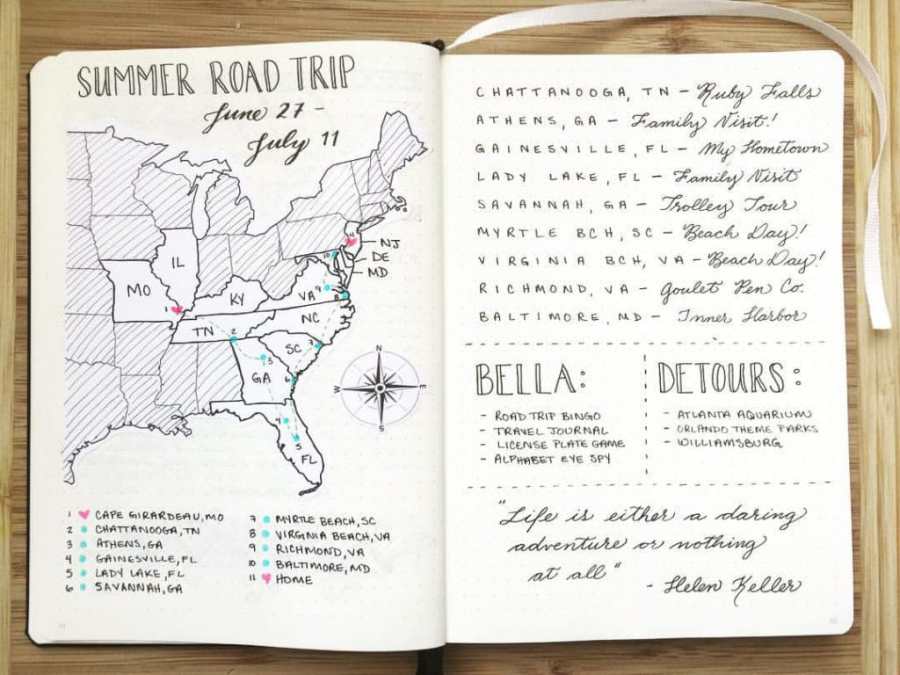 SUMMER ROAD TRIP
June 27 -
July 11
NJ
DE
MD
IL
MO
KY
VA
NC
TN
SC
GA
FL
N
W
E
S
1 CAPE GIRARDEAU, MO
2 CHATTANOOGA, TN
3 ATHENS, GA
4 GAINESVILLE, FL
5 LADY LAKE, FL
6 SAVANNAH, GA
7 MYRTLE BEACH, SC
8 VIRGINIA BEACH, VA
9 RICHMOND, VA
10 BALTIMORE, MD
11 HOME
CHATTANOOGA, TN - Ruby Falls
ATHENS, GA - Family Visit!
GAINESVILLE, FL - My Hometown
LADY LAKE, FL - Family Visit
SAVANNAH, GA - Trolley Tour
MYRTLE BCH, SC - Beach Day!
VIRGINIA BCH, VA - Beach Day!
RICHMOND, VA - Goulet Pen Co.
BALTIMORE, MD - Inner Harbor
BELLA:
- ROAD TRIP BINGO
- TRAVEL JOURNAL
- LICENSE PLATE GAME
- ALPHABET EYE SPY
DETOURS:
- ATLANTA AQUARIUM
- ORLANDO THEME PARKS
- WILLIAMSBURG
"Life is either a daring
adventure or nothing
at all"
- Helen Keller